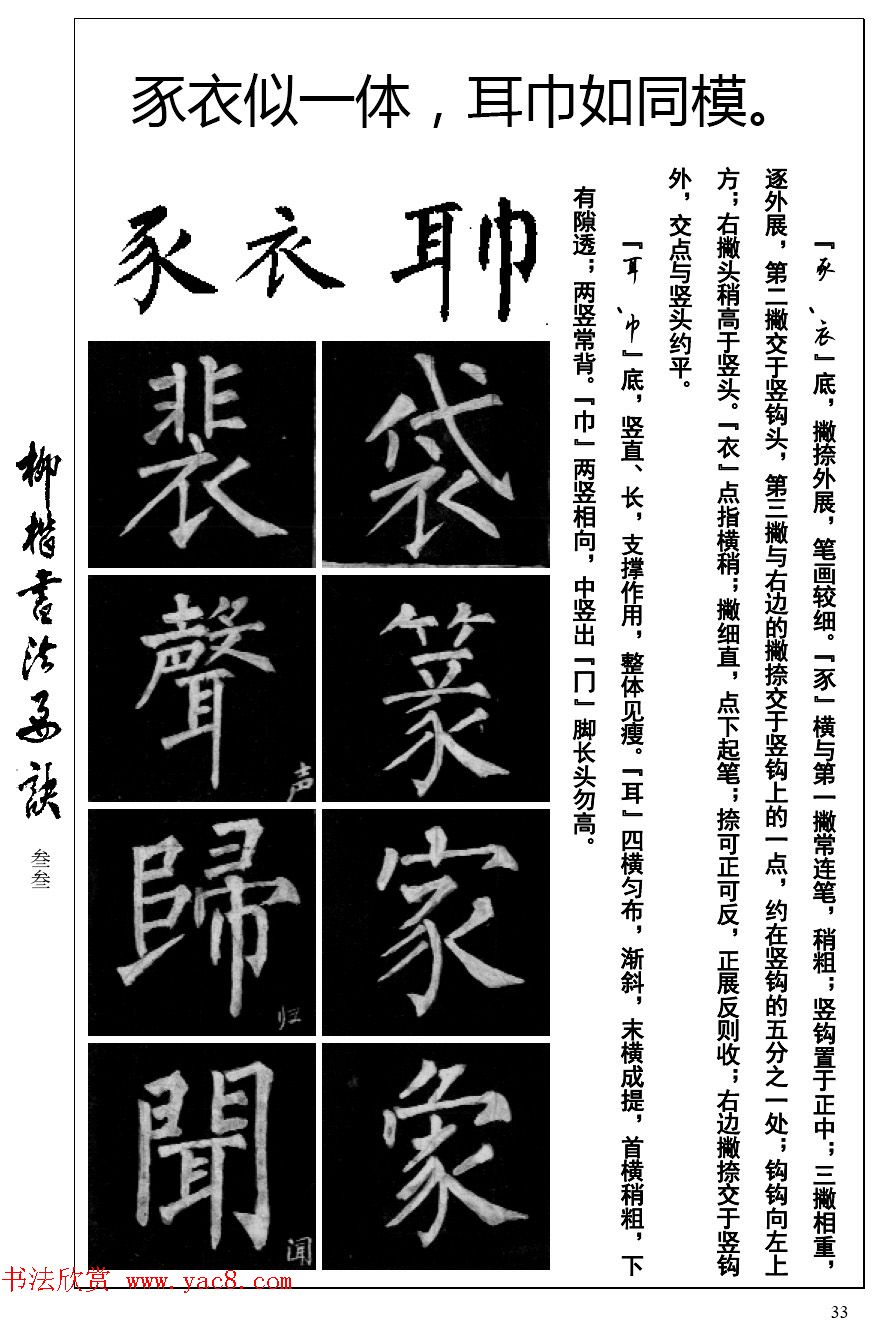 豖衣似一体，耳巾如同模。
豕 衣 耳 巾
『豕、衣』底，撇捺外展，笔画较细。『豕』横与第一撇常连笔，稍粗；竖钩置于正中；三撇相重，
逐外展，第二撇交于竖钩头，第三撇与右边的撇捺交于竖钩上的一点，约在竖钩的五分之一处；钩钩向左上
方；右撇头稍高于竖头。『衣』点指横稍；撇细直，点下起笔；捺可正可反，正展反则收；右边撇捺交于竖钩
外，交点与竖头约平。
『耳、巾』底，竖直、长，支撑作用，整体见瘦。『耳』四横匀布，渐斜，末横成提，首横稍粗，下
有隙透；两竖常背。『巾』两竖相向，中竖出『冂』脚长头勿高。
袋
篆
家
象
裴
聲
声
歸
归
聞
闻
柳楷書法要訣
叁叁
书法欣赏 www.yac8.com
33